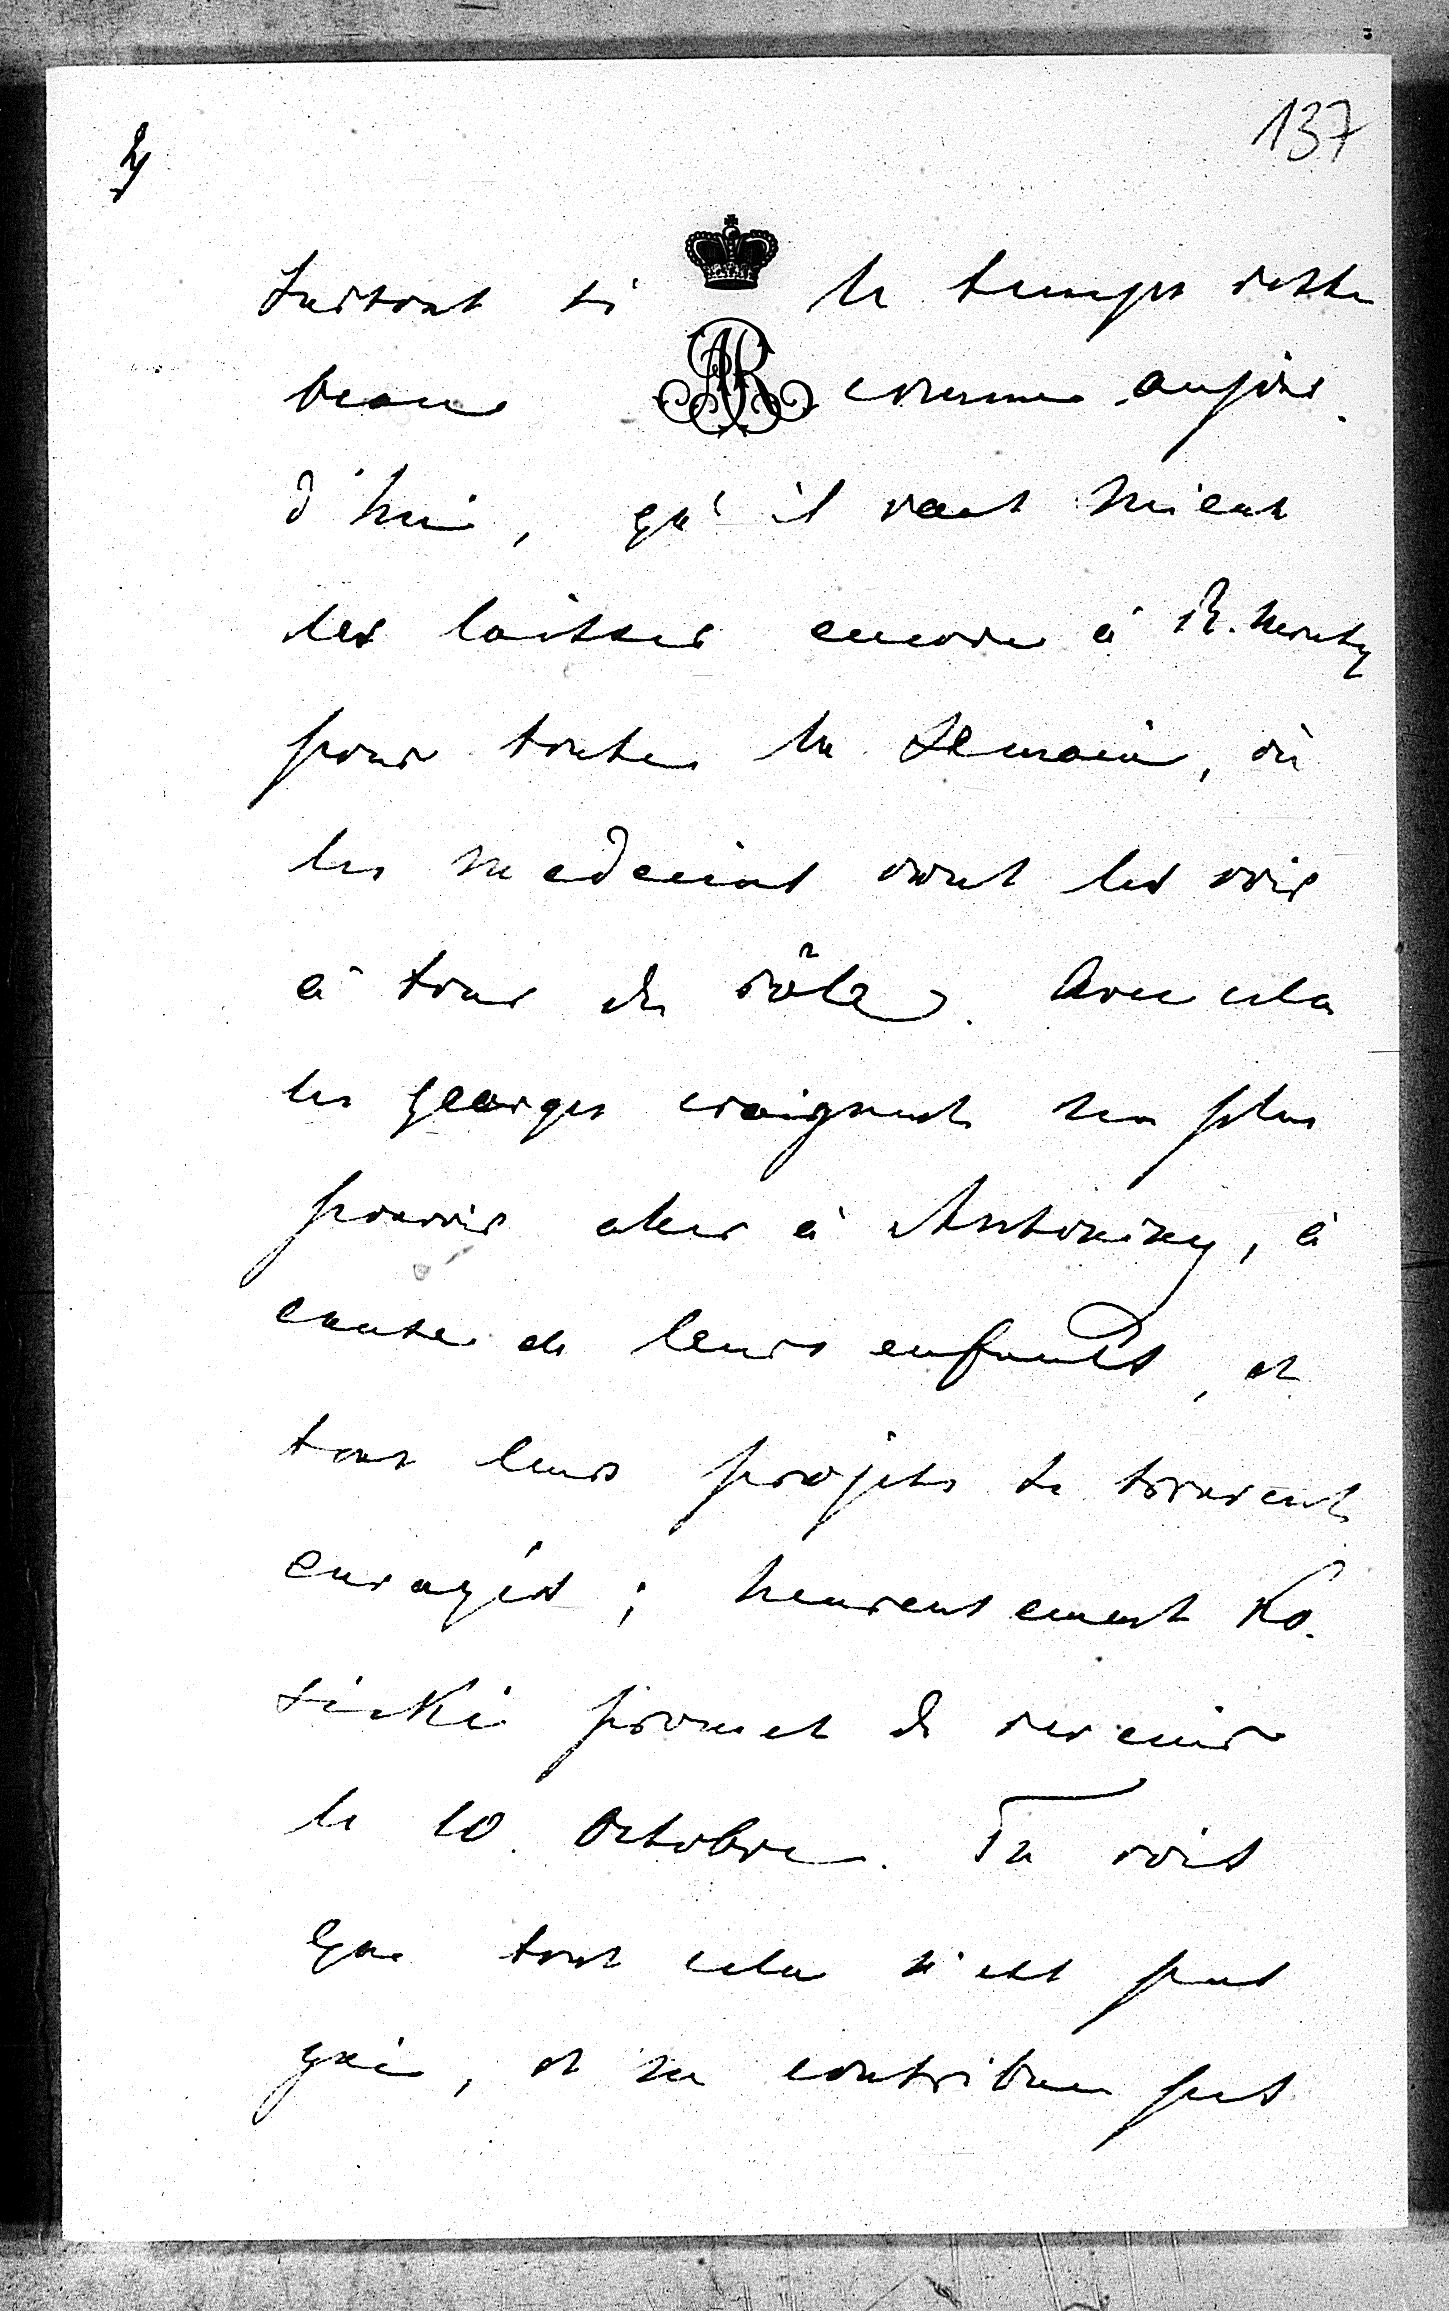 137
2)
surtout si le temps reste
beau comme aujour-
d'hui, qu'il vaut mieux
les laisser encore à
pour toute la semaine, où
les medecins vont les voir
à tour de rôle. Avec cela
les Georges craignent ne plus
pouvoir aller à Antoniny, à
cause de leurs enfants, et
tous leurs projets se trouvent
enrayés; heureusement Ko-
sicki promet de revenir
le 10 Octobre. Tu vois
que tout cela n'est pas
gai, et ne contribue pas